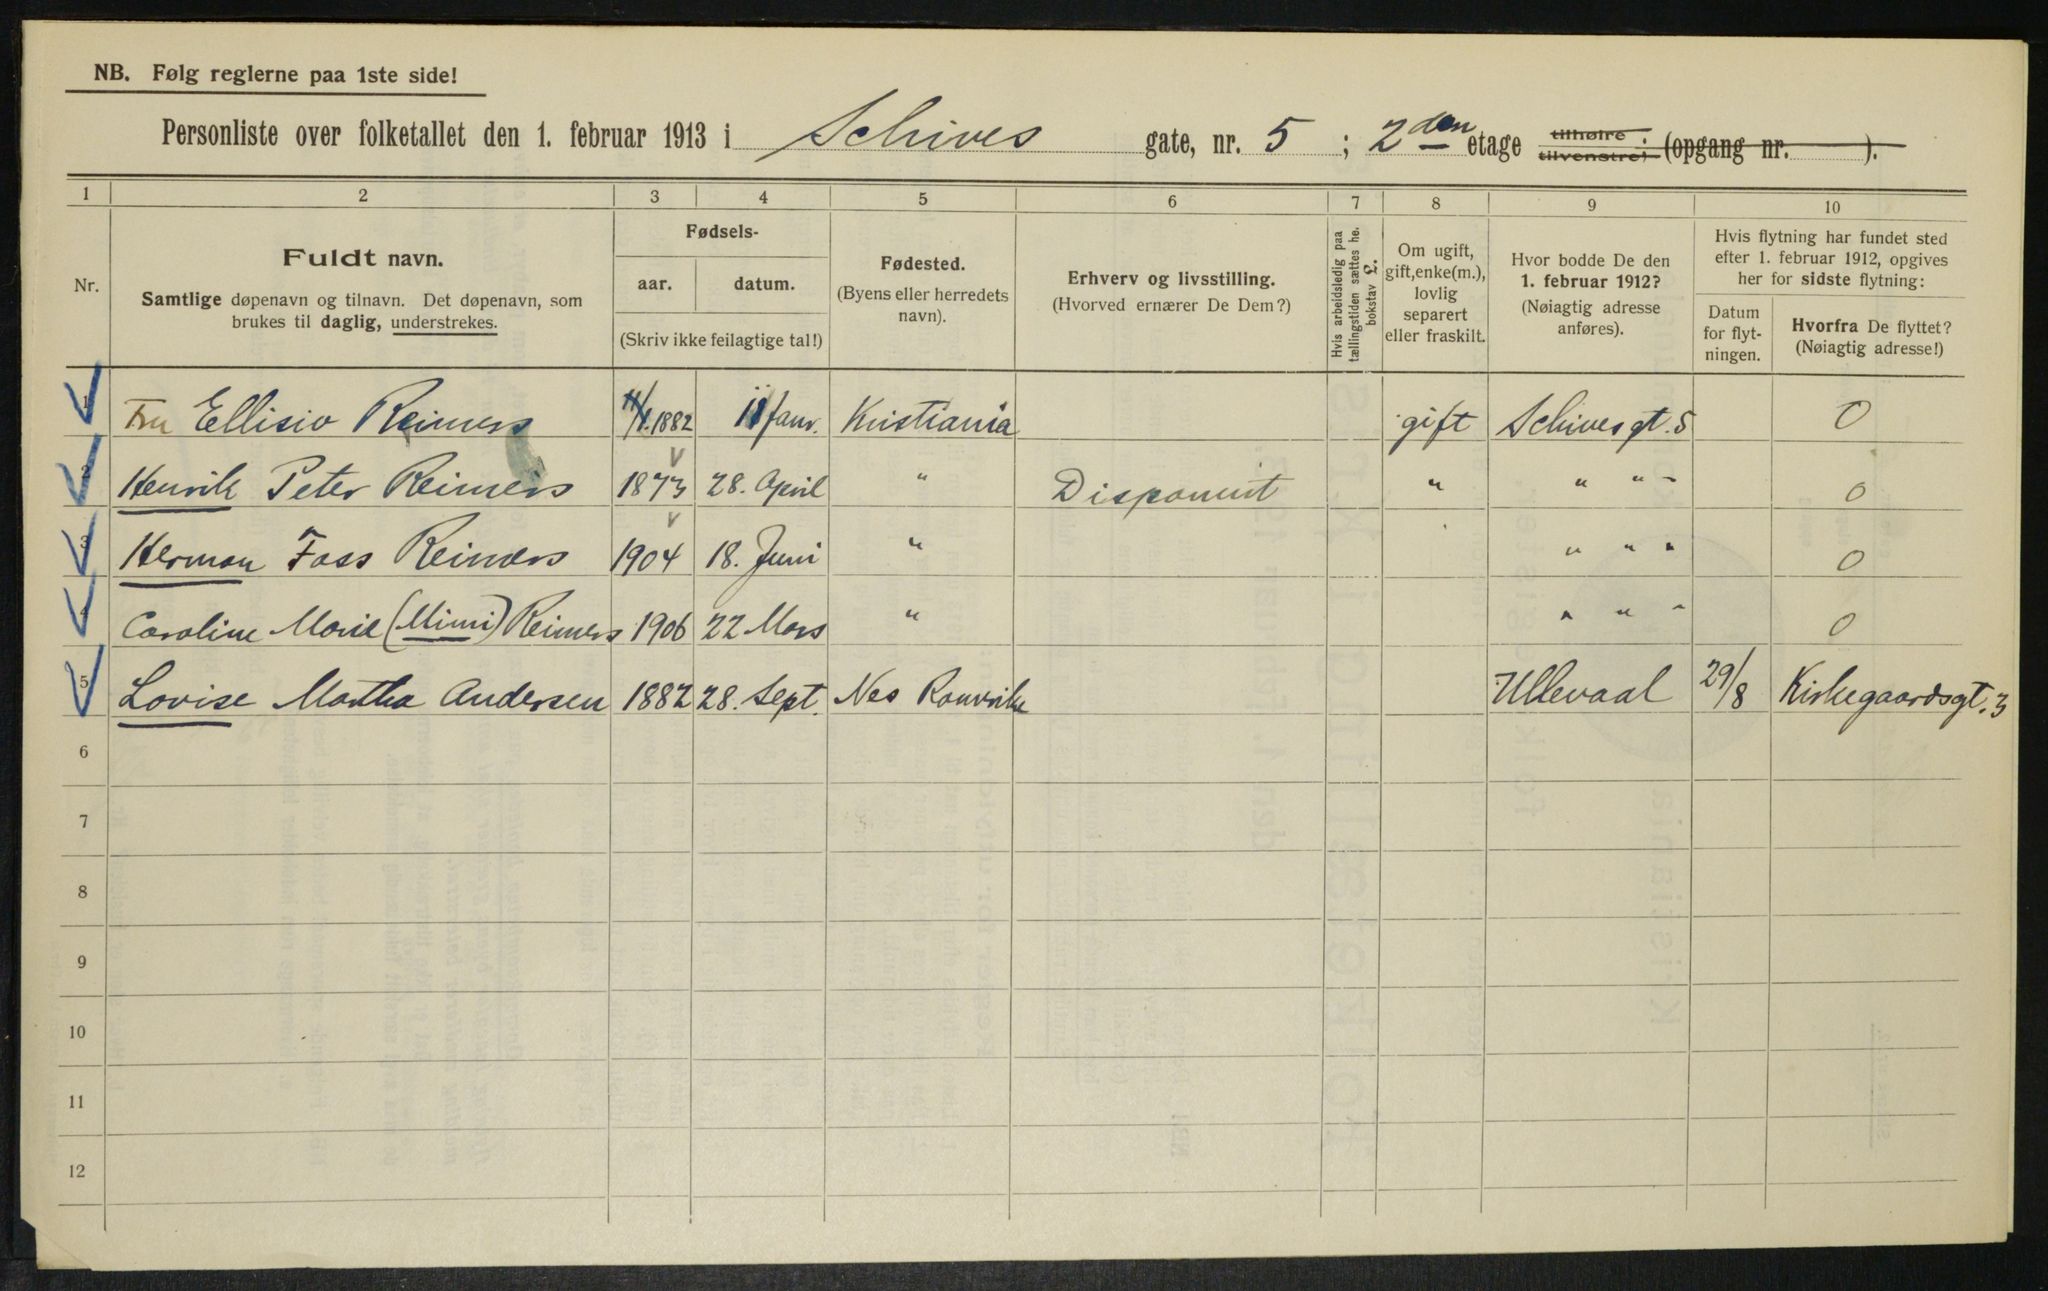 NB. Følg reglerne paa 1ste side!
Personliste over folketallet den 1. februar 1913 i Schives gate, nr. 5 ; 2den etage tilhøire ; tilvenstre; (opgang nr. ).
1 2 3 4 5 6 7 8 9 10
Nr.
Fuldt navn.
Samtlige døpenavn og tilnavn. Det døpenavn, som
brukes til daglig, understrekes.
Fødsels-
aar. datum.
(Skriv ikke feilagtige tal!)
Fødested.
(Byens eller herredets
navn).
Erhverv og livsstilling.
(Hvorved ernærer De Dem?)
Hvis arbeidsledig paa
tællingstiden sættes he.
bokstav L.
Om ugift,
gift, enke(m.),
lovlig
separert
eller fraskilt.
Hvor bodde De den
1. februar 1912?
(Nøiagtig adresse
anføres).
Hvis flytning har fundet sted
efter 1. februar 1912, opgives
her for sidste flytning:
Datum
for flyt-
ningen.
Hvorfra De flyttet?
(Nøiagtig adresse!)
1 Fru Ellisiv Reimers 11/1.1882 11 Janr. Kristiania gift Schivesgt. 5 0
2 Henrik Peter Reimers 1873 28. April " Disponent " " " " 0
3 Herman Foss Reimers 1904 18. Juni " " " " 0
4 Caroline Marie (Mimi) Reimers 1906 22 Mars " " " " 0
5 Lovise Martha Andersen 1882 28. Sept. Nes Romrike Ullevaal 29/8 Kirkegaardsgt. 3
6
7
8
9
10
11
12